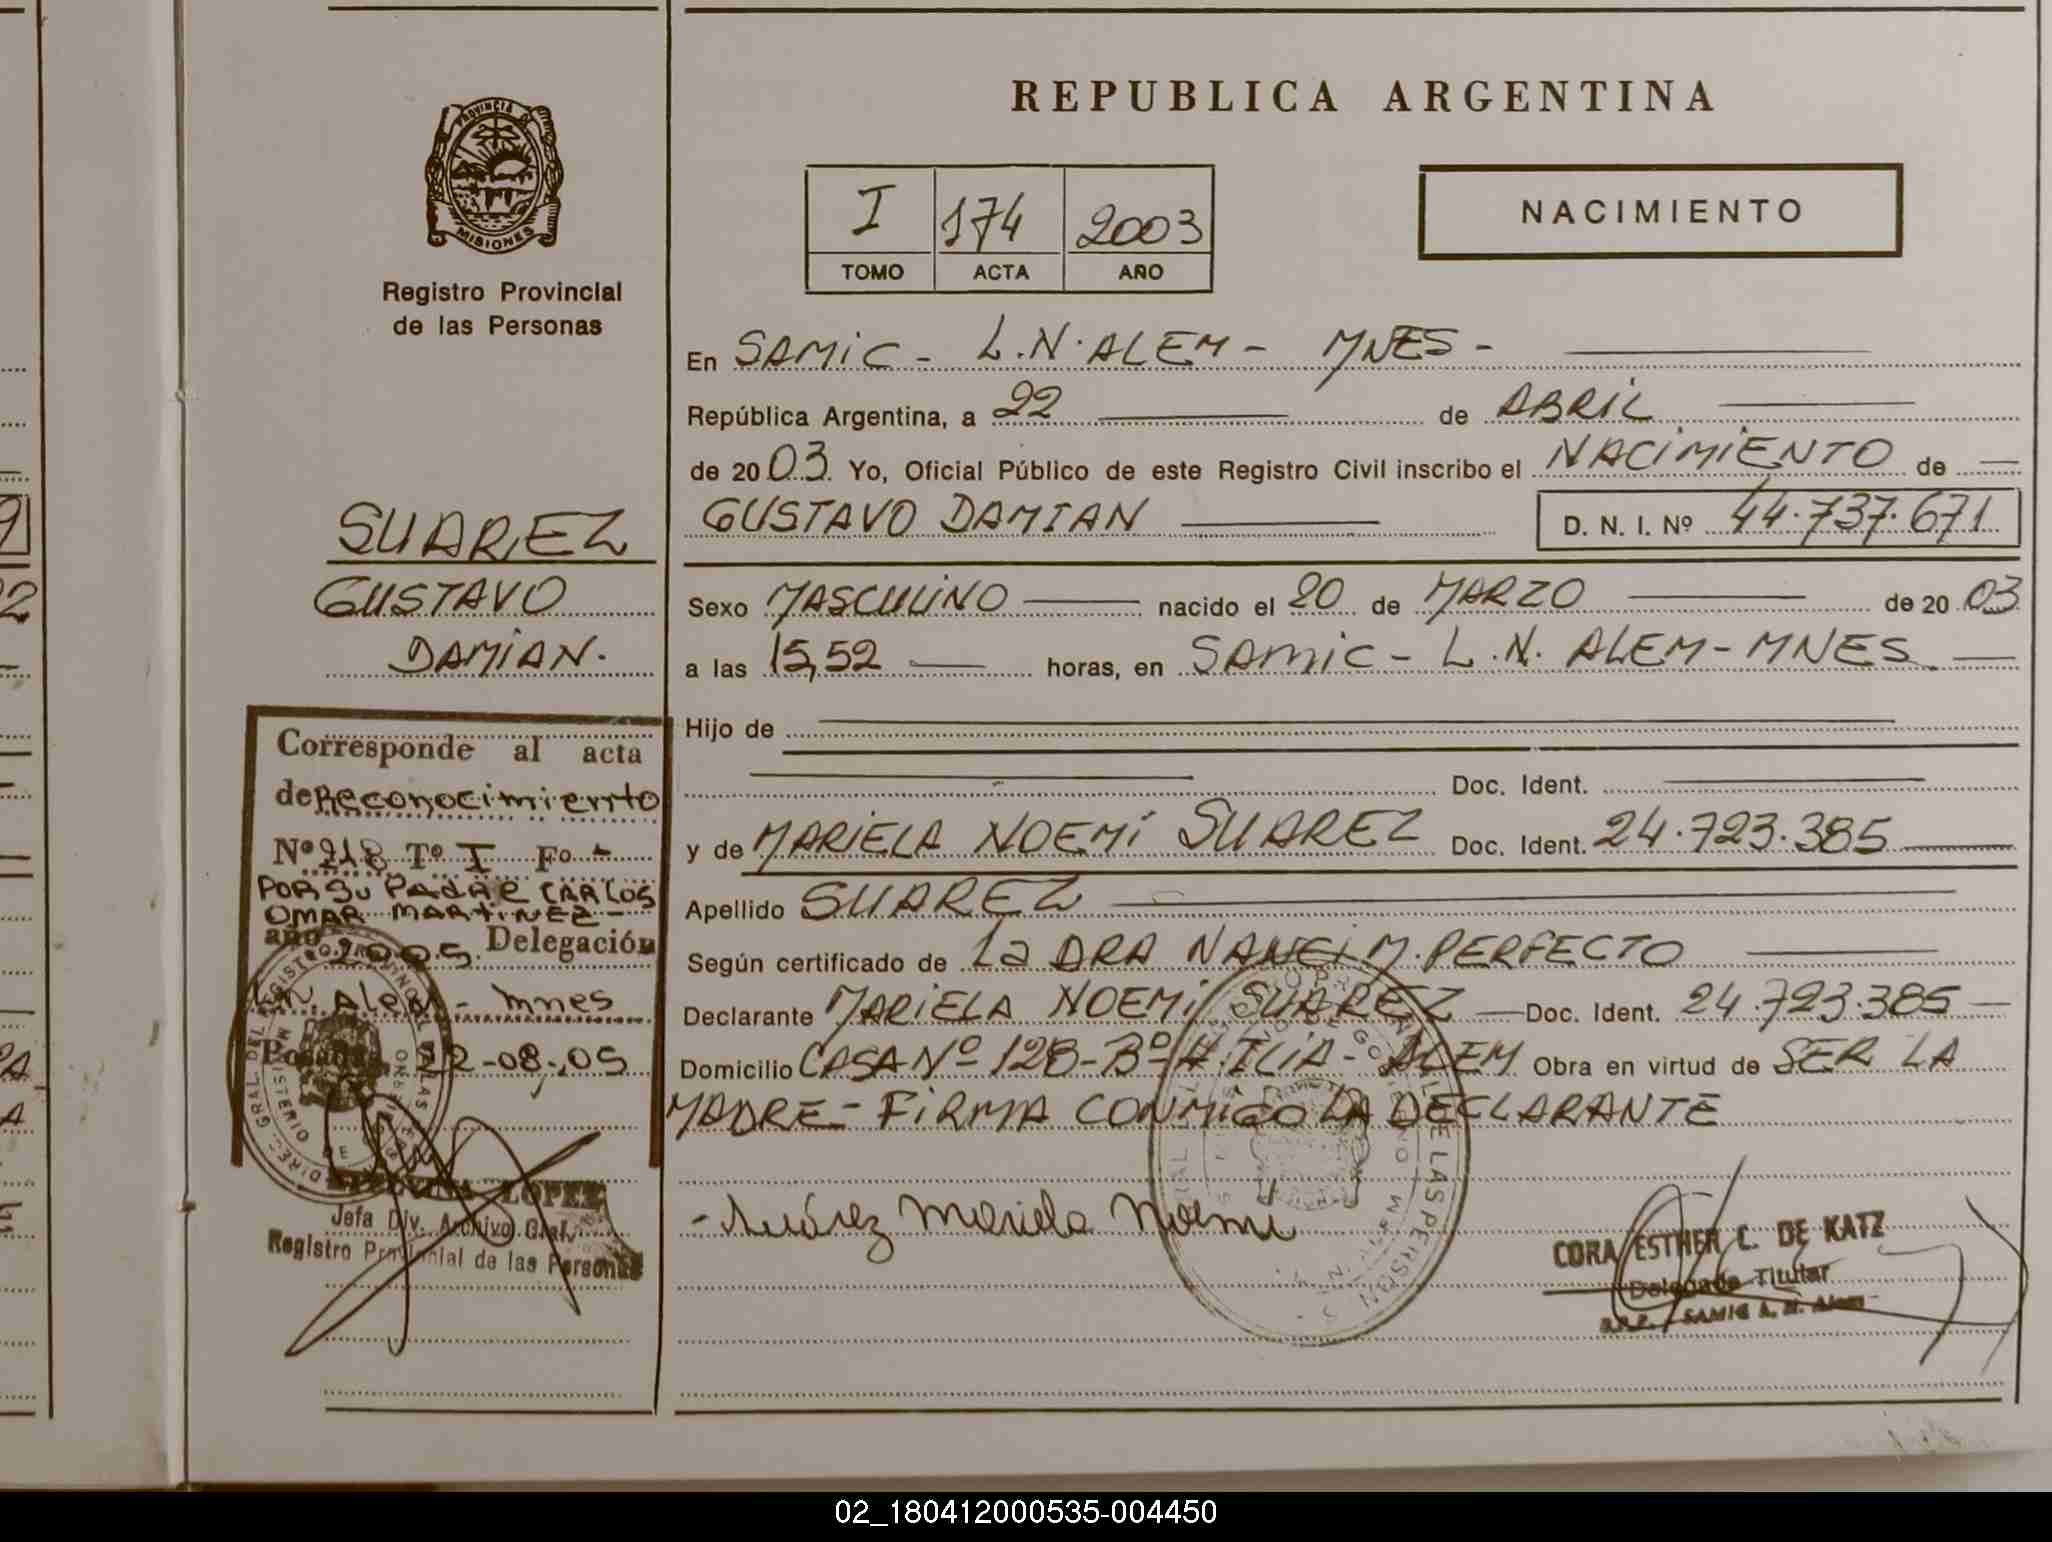 PROVINCIA DE
MISIONES
Registro Provincial
de las Personas
SUAREZ
GUSTAVO
DAMIAN.
Corresponde al acta
de Reconocimiento
Nº 218 Tº I Fº -
POR SU PADRE CARLOS
OMAR MARTINEZ -
año 2005. Delegación
N. Alem - mnes
Posadas 22-08-05
LOPEZ
Jefa Div. Archivo Gral.
Registro Provincial de las Personas
REPUBLICA ARGENTINA
I 174 2003
TOMO ACTA AÑO
NACIMIENTO
En SAMIC - L.N. ALEM - MNES -
República Argentina, a 22 de ABRIL
de 2003. Yo, Oficial Público de este Registro Civil inscribo el NACIMIENTO de
GUSTAVO DAMIAN D. N. I. Nº 44.737.671
Sexo MASCULINO nacido el 20 de MARZO de 2003
a las 15,52 horas, en SAMIC - L.N. ALEM - MNES
Hijo de
Doc. Ident.
y de MARIELA NOEMI SUAREZ Doc. Ident. 24.723.385
Apellido SUAREZ
Según certificado de La DRA M. PERFECTO
Declarante MARIELA NOEMI SUAREZ Doc. Ident. 24.723.385
Domicilio CASA Nº 128 - Bº H. ILIA - ALEM Obra en virtud de SER LA
MADRE - FIRMA CONMIGO LA DECLARANTE
- Suárez Mariela Noemi
CORA ESTHER C. DE KATZ
Delegada Titular
SAMIC L. N. Alem
02_180412000535-004450